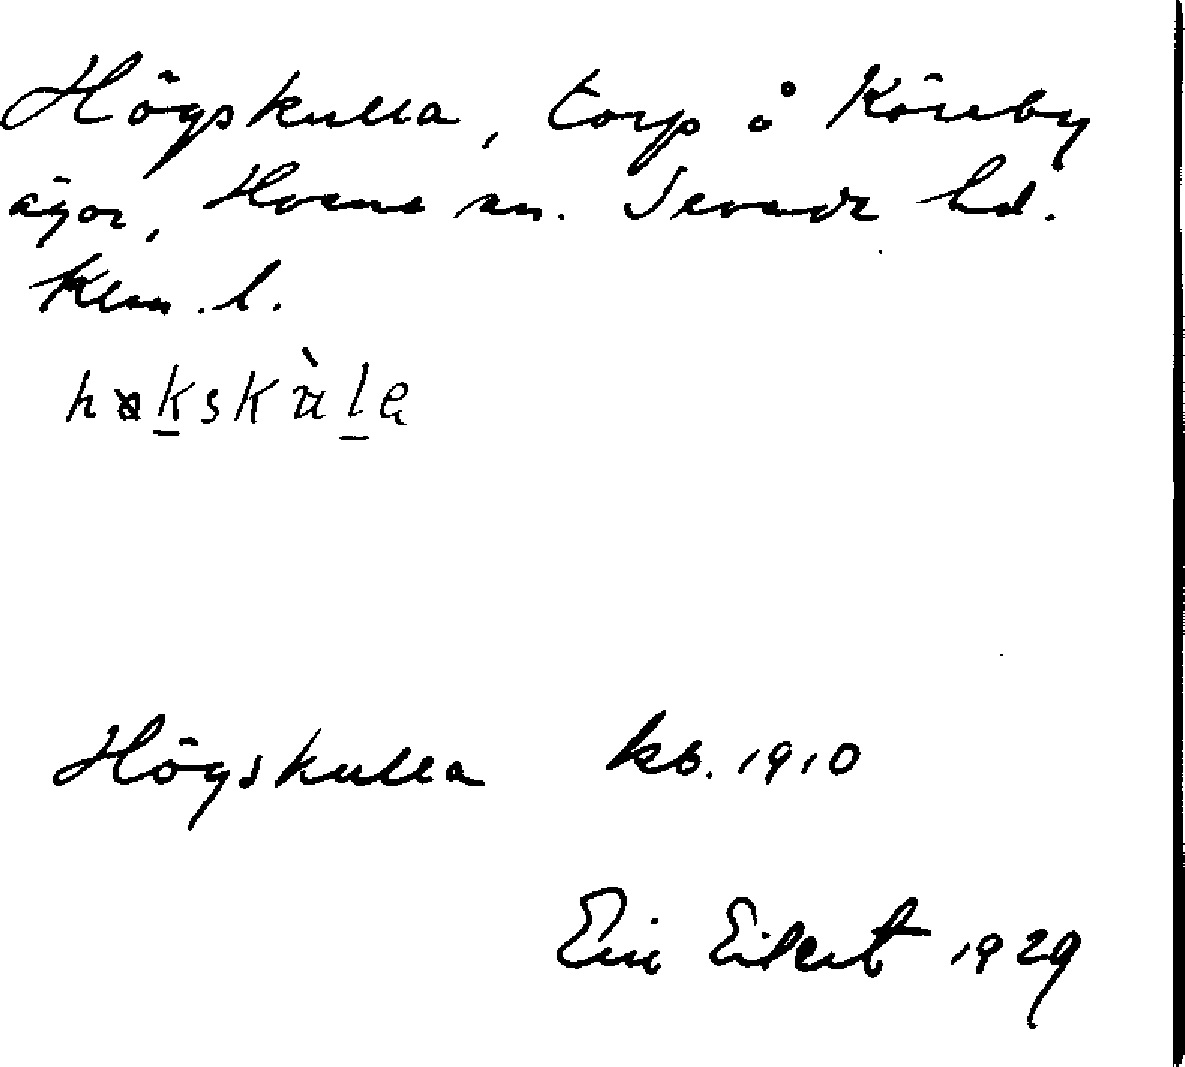 Högskulla, torp å Köreby
ägor, Horns sn. Sevede hd.
Klm. l.
Högskulla kb. 1910
Eric Eilert 1929